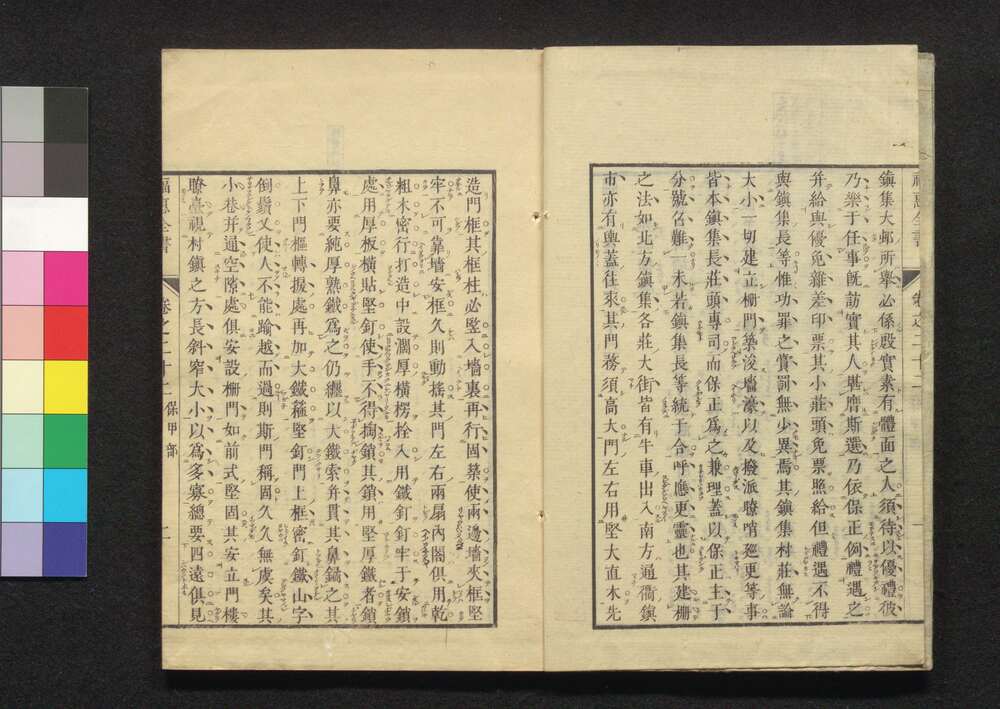 福惠全書
卷之二十二
一
鎭集大邨所舉必係殷實素有體面之人須待以優禮彼
乃樂于任事既訪實其人堪膺斯選乃依保正例禮遇之
幷給與優免雜差印票其小莊頭免票照給但禮遇不得
與鎭集長等惟功罪之賞罰無少異焉其鎭集村莊無論
大小一切建立柵門築浚墻濠以及撥派瞭哨廵更等事
皆本鎭集長莊頭專司而保正爲之兼理蓋以保正主于
分號召難一未若鎭集長等統于合呼應更靈也其建柵
之法如北方鎭集各莊大街皆有牛車出入南方通衢鎭
市亦有輿蓋往來其門務須高大門左右用堅大直木先
造門框其框柱必竪入墻裏再行固築使兩邊墻夾框堅
牢不可靠墻安框久則動搖其門左右兩扇內閣俱用乾
粗木密行打造中設濶厚橫楞拴入用鐵釘釘牢于安鎖
處用厚板橫貼堅釘使手不得掏鎖其鎖用堅厚鐵者鎖
鼻亦要純厚熟鐵爲之仍纏以大鐵索幷貫其鼻鍋之其
上下門樞轉捩處再加大鐵箍堅釘門上框密釘鐵山字
倒鬚又使人不能踰越而過則斯門稱固久久無虞矣其
小巷幷通空隙處俱安設柵門如前式堅固其安立門樓
瞭臺視村鎭之方長斜窄大小以爲多寡總要四遠俱見
福惠全書
卷之二十二
保甲部
二